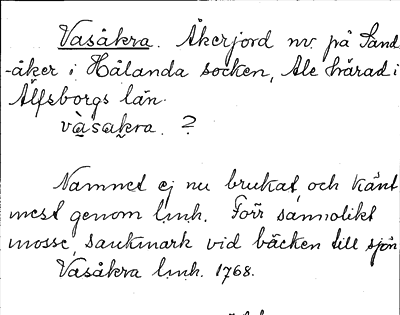 Vasåkra. Åkerjord nv. på Sand
-åker i Hålanda socken, Ale härad i
Älfsborgs län.
vàsakra. ?
Namnet ej nu brukat, och känt
mest genom l.m.h. Förr sannolikt
mosse, sankmark vid bäcken till sjön
Vasåkra l.m.h. 1768.